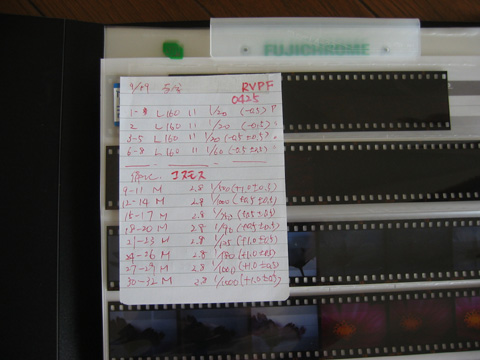 FUJICHROME
9/29
RVPF
0425
1- L160 11 1/20 (-0.5) P
2 L160 11 1/20 (-0.5)
3-5 L160 11 1/20 (-0.5±0.5)
6-8 L160 11 1/60 (-0.5±0.5)
コスモス
9-11 M 2.8 (+1.0±0.5)
12-14 M 2.8 (+0.5±0.5)
15-17 M 2.8 (+0.5±0.5)
18-20 M 2.8 1/90 (+0.5±0.5)
21-23 M 2.8 1/125 (+1.0±0.5)
24-26 M 2.8 1/180 (+1.0±0.5)
27-29 M 2.8 1/1000 (+1.0±0.5)
30-32 M 2.8 1/1000 (+1.0±0.5)